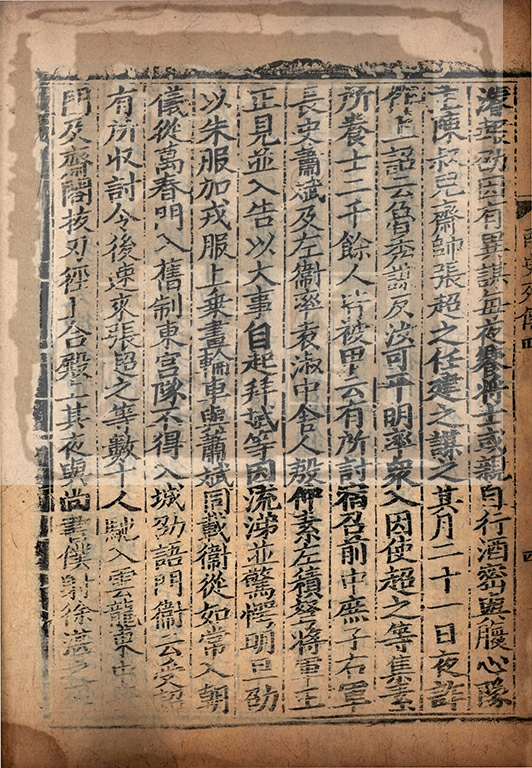 濬無劭因有異謀每夜饗將士或親自行酒密與腹心隊
主陳叔兒齋帥張超之任建之謀之其月二十一日夜詐
作上詔云魯秀謀反汝可平明率衆入因使超之等集素
所養士二千餘人皆被甲云有所討宿召前中庶子右軍
長史蕭斌及左衞率袁淑中舍人殷仲素左積弩將軍王
正見並入告以大事自起拜斌等因流涕並驚愕明旦劭
以朱服加戎服上乘畫輪車與蕭斌同載衞從如常入朝
儀從萬春門入舊制東宮隊不得入城劭語門衞云受詔
有所收討令後速來張超之等數十人馳入雲龍東中
門及齋閣拔刃徑上合殿上其夜與尚書僕射徐湛之